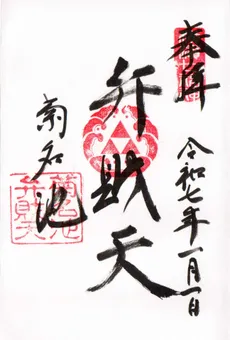 奉拝
令和七年一月一日
弁財天
菊名池
菊名池
弁財天